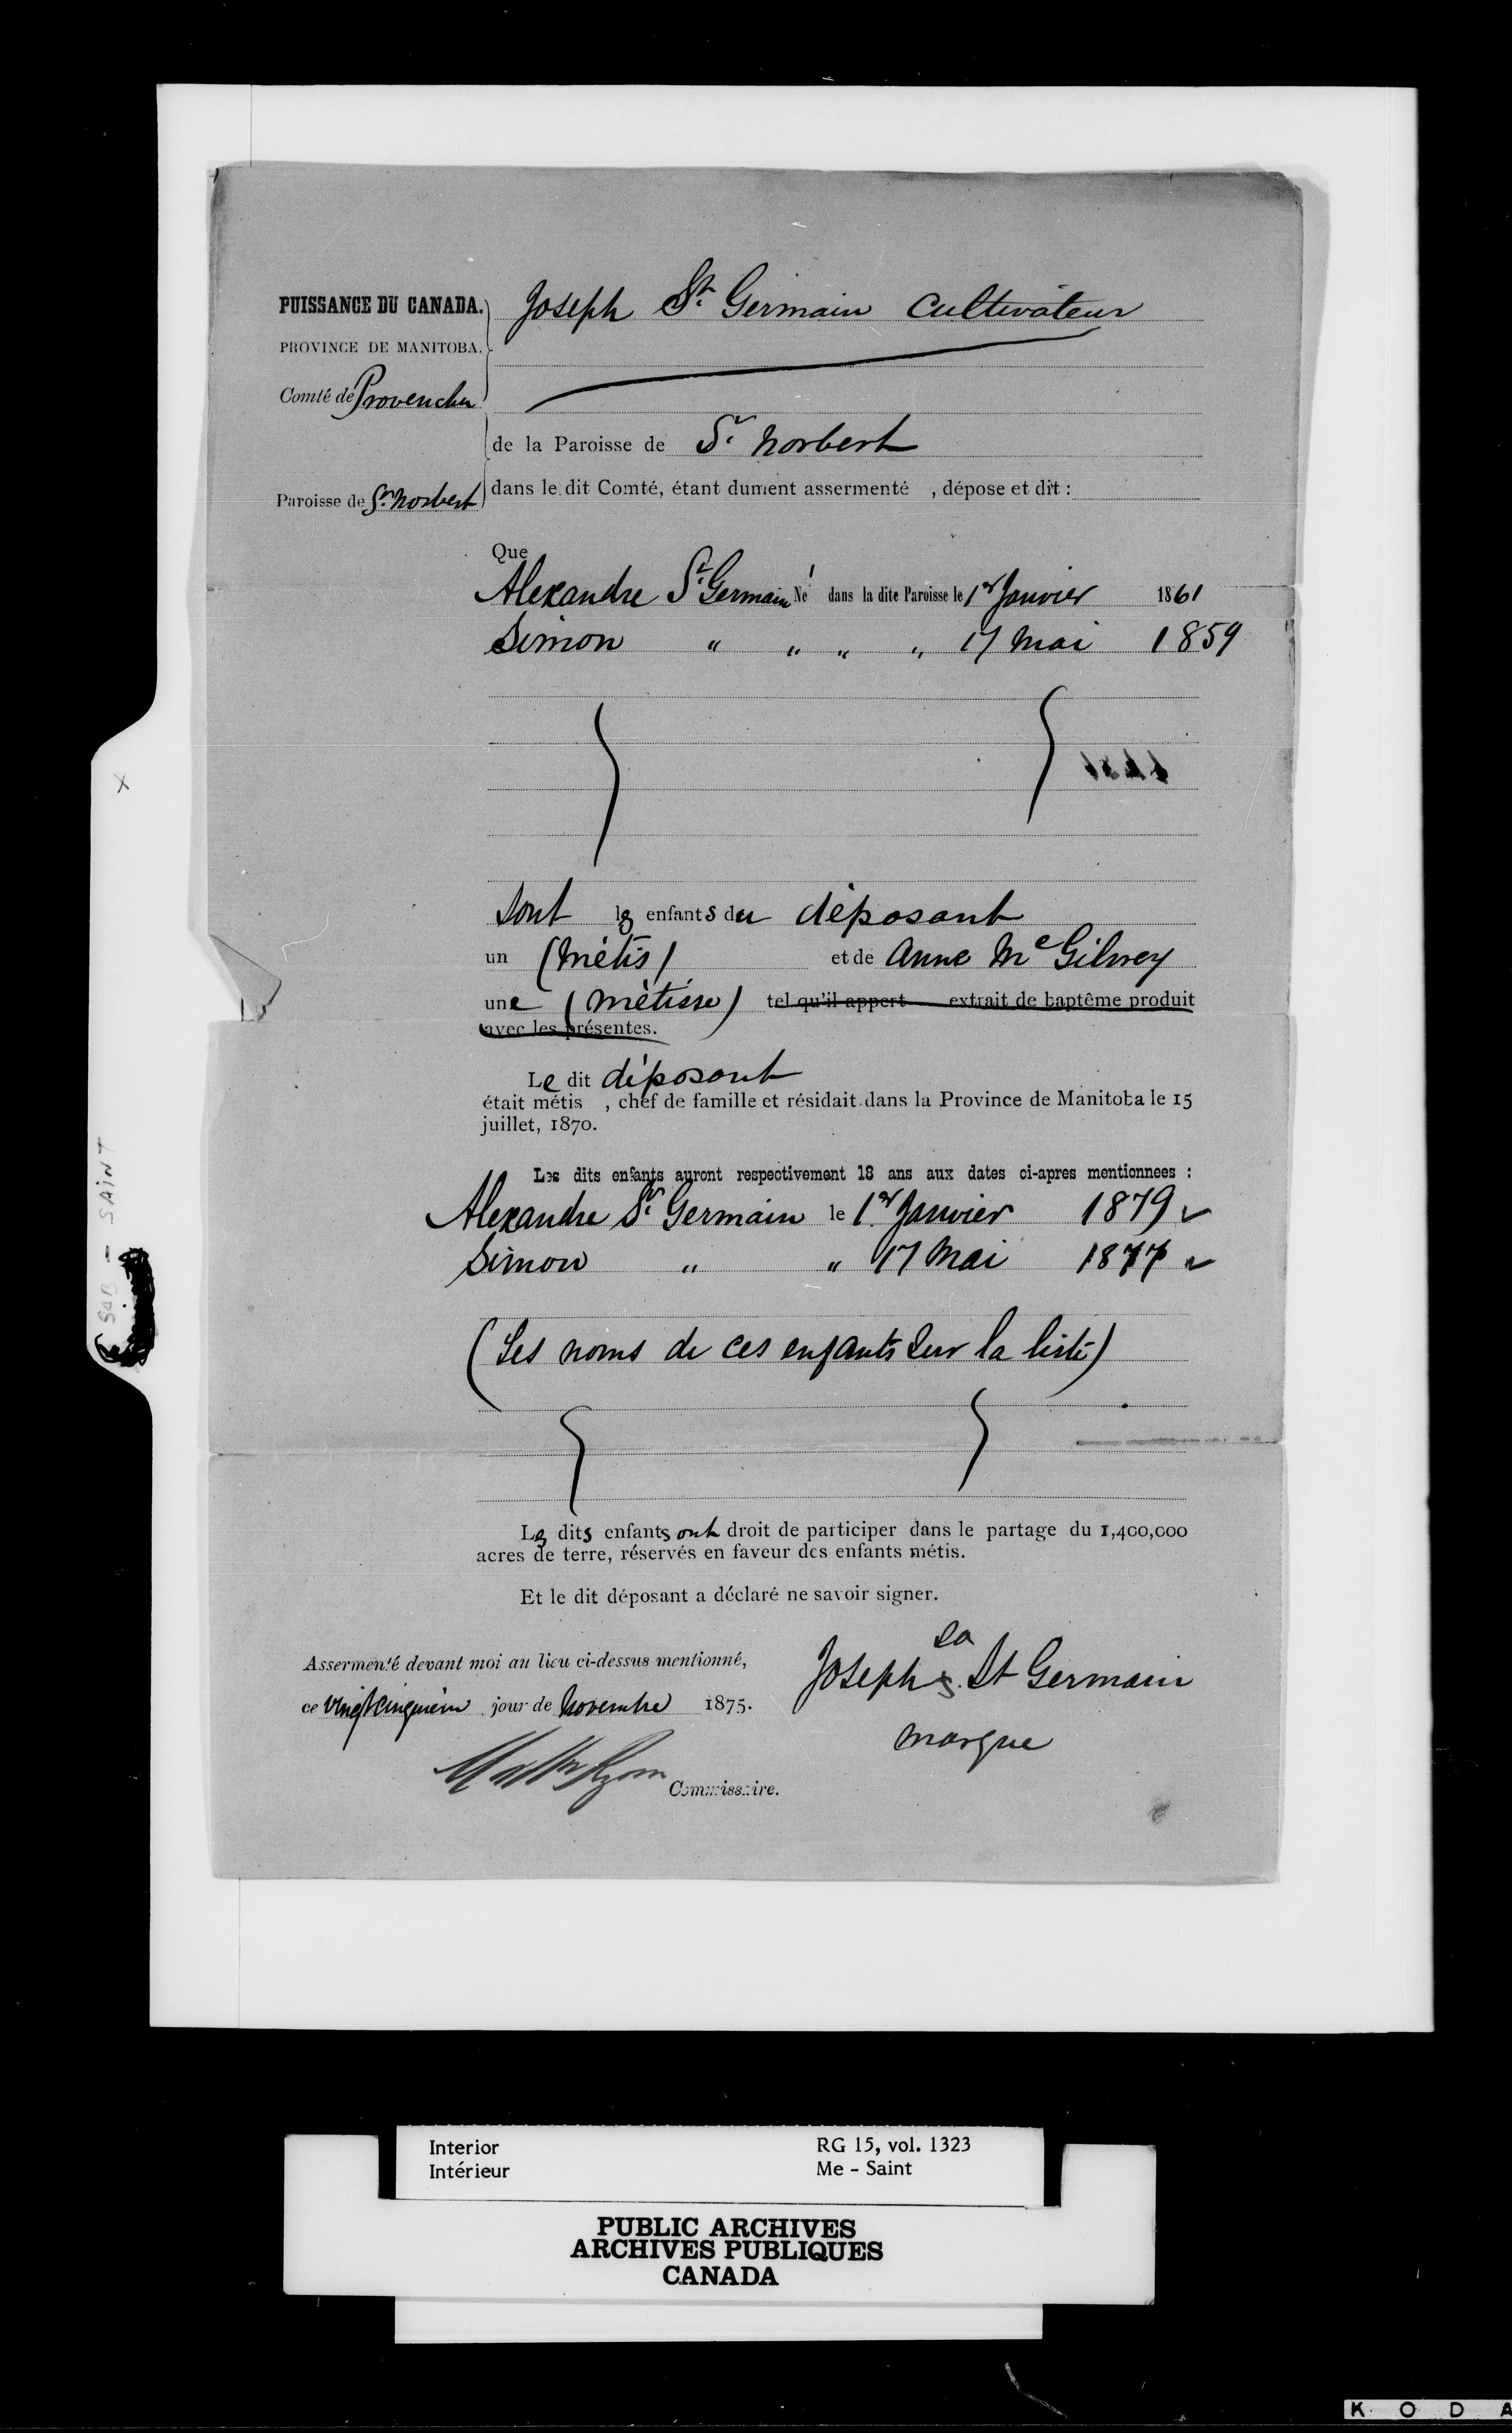 PUISSANCE DU CANADA. Joseph St. Germain Cultivateur
PROVINCE DE MANITOBA.
Comté de Provencher
de la Paroisse de St. Norbert
Paroisse de St. Norbert dans le dit Comté, étant dument assermenté , dépose et dit :
Que
Alexandre St. Germain Né dans la dite Paroisse le 1er Janvier 1861
Simon " " " " 17 Mai 1859
sont les enfants du déposant
un (Métis) et de Anne McGilvrey
une (Métisse) tel qu'il appert extrait de baptême produit
avec les présentes.
Le dit déposant
était métis , chef de famille et résidait dans la Province de Manitoba le 15
juillet, 1870.
Les dits enfants auront respectivement 18 ans aux dates ci-apres mentionnees :
Alexandre St. Germain le 1er Janvier 1879
Simon " " 17 Mai 1877
(Les noms de ces enfants sur la liste)
Les dits enfants ont droit de participer dans le partage du 1,400,000
acres de terre, réservés en faveur des enfants métis.
Et le dit déposant a déclaré ne savoir signer.
Assermenté devant moi au lieu ci-dessus mentionné,
ce vingt cinquiem jour de Novembre 1875.
Commissaire.
sa
Joseph St Germain
marque
X
SAB - SAINT
Interior RG 15, vol. 1323
Intérieur Me - Saint
PUBLIC ARCHIVES
ARCHIVES PUBLIQUES
CANADA
K O D A